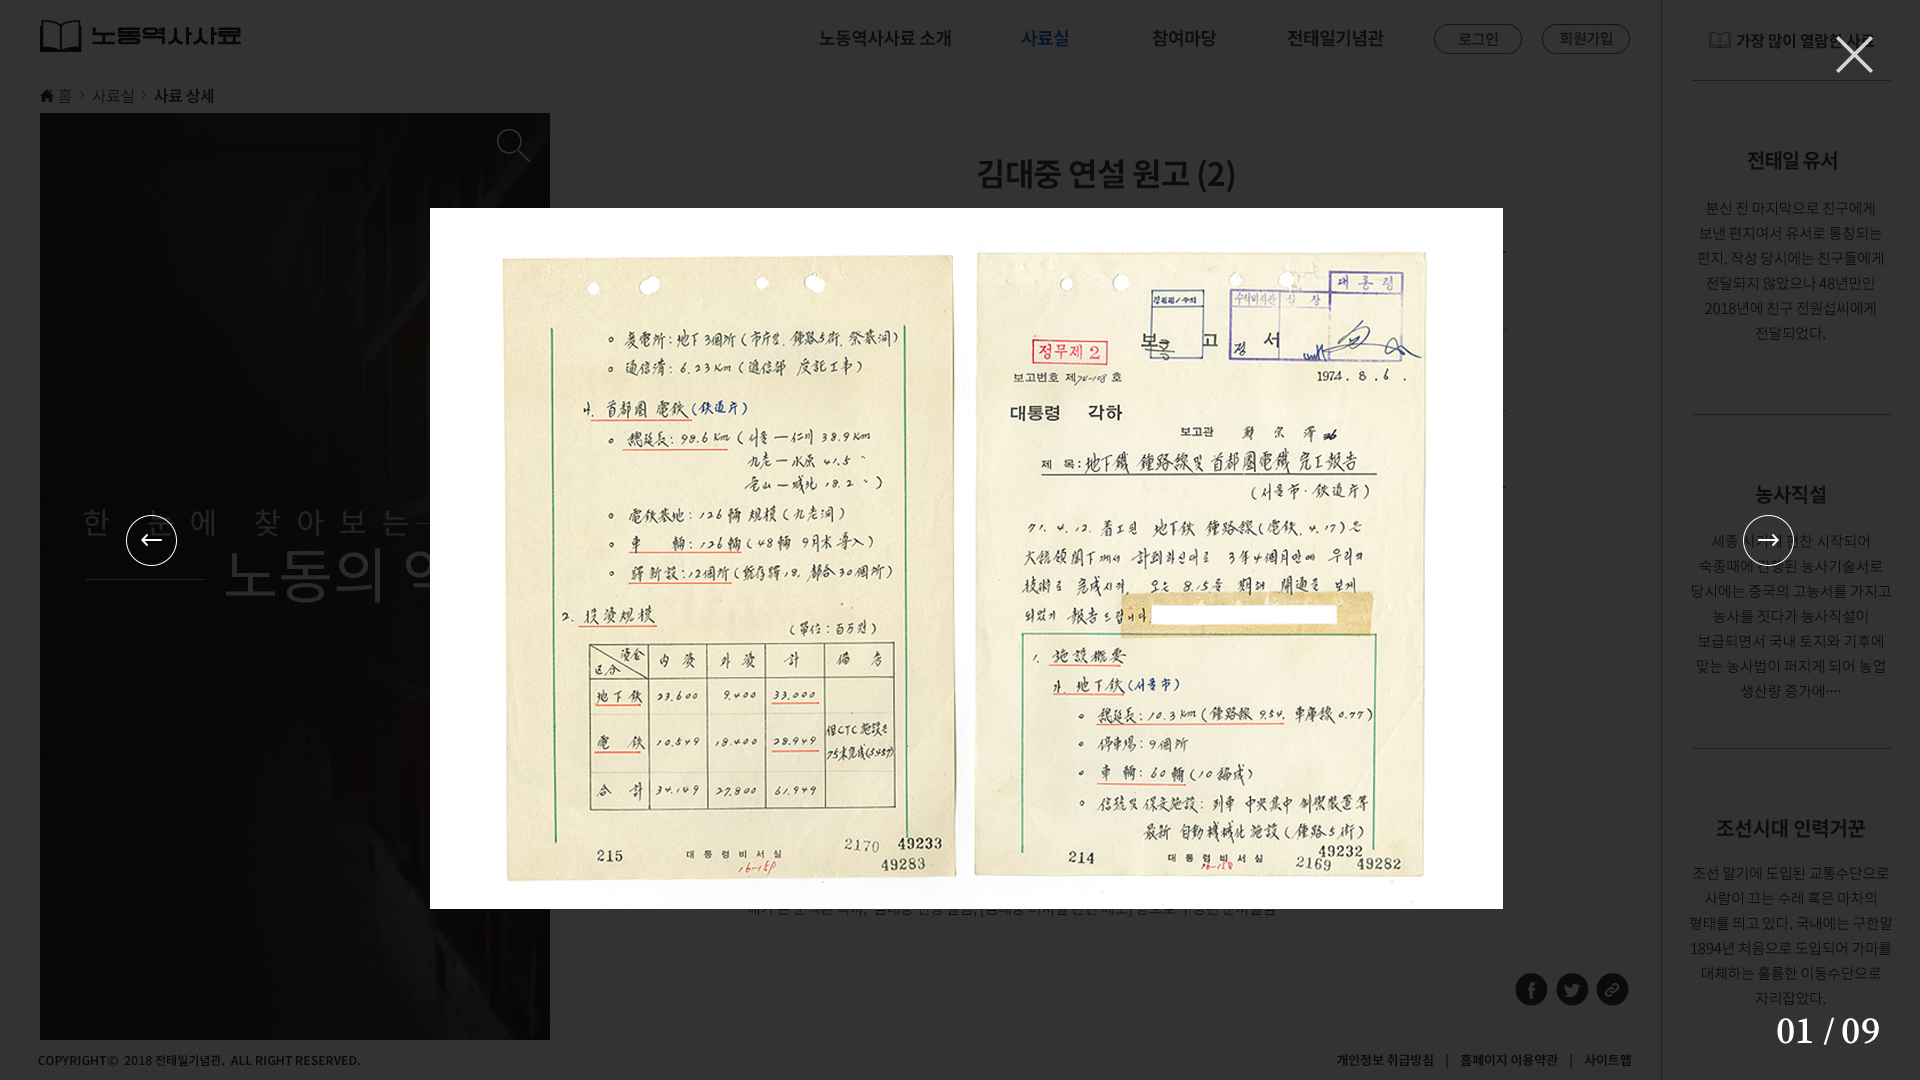 노동역사사료
노동역사사료 소개
사료실
참여마당
전태일기념관
로그인
회원가입
가장 많이 열람한 사료
홈 > 사료실 > 사료 상세
김대중 연설 원고 (2)
한 눈에 찾아보는
노동의
○ 變電所: 地下 3個所 (市庁앞, 鍾路5街, 祭基洞)
○ 通信溝: 6.23Km (逓信部 受託工事)
나. 首都圏 電鉄 (鉄道庁)
○ 總延長: 98.6Km (서울 — 仁川 38.9Km
九老 — 水原 41.5 〃
— 城北 18.2 〃)
○ 電鉄基地: 126輛 規模 (九老洞)
○ 車 輛: 126輛 (48輛 9月末 導入)
○ 驛新設: 12個所 (旣存驛 18, 都合 30個所)
2. 投資規模
(單位: 百万원)
資金
区分
内 資 外 資 計 備 考
地下鉄 23.600 9.400 33.000
電 鉄 10.549 18.400 28.949 但 CTC 施設은
75末完成(5.457)
合 計 34.149 27.800 61.949
215
대통령비서실
16-159
2170
49233
49283
대통령
보 고 서
정무제 2
보고번호 제74-158호
1974. 8. 6.
대통령 각하
보고관
제 목: 地下鐵 鍾路線 및 首都圏電鐵 完工報告
(서울市·鉄道庁)
71. 4. 12. 着工된 地下鉄 鍾路線(電鉄, 4.17)은
大統領閣下께서 計画하신대로 3年4個月만에 우리의
技術로 完成시켜, 오는 8.15을 期해 開通을 보게
되었기 報告드립니다.
1. 施設概要
가. 地下鉄 (서울市)
○ 總延長: 10.3Km (鍾路線 9.54, 車庫線 0.77)
○ 停車場: 9個所
○ 車 輛: 60輛 (10編成)
○ 信號 및 保安施設: 列車 中央集中 制禦裝置 等
最新 自動機械化 施設 (鍾路5街)
214
대통령비서실
16-158
49232
2169
49282
전태일 유서
분신 전 마지막으로 친구에게
보낸 편지여서 유서로 통칭되는
편지. 작성 당시에는 친구들에게
전달되지 않았으나 48년만인
2018년에 친구 전원섭씨에게
전달되었다.
농사직설
세종 시기에 편찬 시작되어
숙종때에 산정된 농사기술서로
당시에는 중국의 고농서를 가지고
농사를 짓다가 농사직설이
보급되면서 국내 토지와 기후에
맞는 농사법이 퍼지게 되어 농업
생산량 증가에····
조선시대 인력거꾼
조선 말기에 도입된 교통수단으로
사람이 끄는 수레 혹은 마차의
형태를 띄고 있다. 국내에는 구한말
1894년 처음으로 도입되어 가마를
대체하는 훌륭한 이동수단으로
자리잡았다.
01 / 09
COPYRIGHT© 2018 전태일기념관. ALL RIGHT RESERVED.
개인정보 취급방침 | 홈페이지 이용약관 | 사이트맵